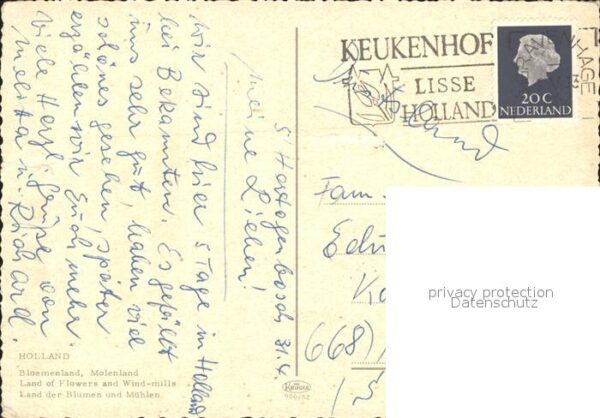 KEUKENHOF
LISSE
HOLLAND
'SGRAVENHAGE
20 C
NEDERLAND
s'Hertogenbosch 31.4.
Meine Lieben!
Wir sind hier 5 Tage in Holland
bei Bekannten. Es gefällt
uns sehr gut, haben viel
schönes gesehen, später
erzählen wir Euch mehr.
Viele Herzl. Grüße von
Melitta u. Richard.
Fam.
Edu
K
(668)
HOLLAND
Bloemenland, Molenland
Land of Flowers and Wind-mills
Land der Blumen und Mühlen
KRÜGER
900/62
privacy protection
Datenschutz